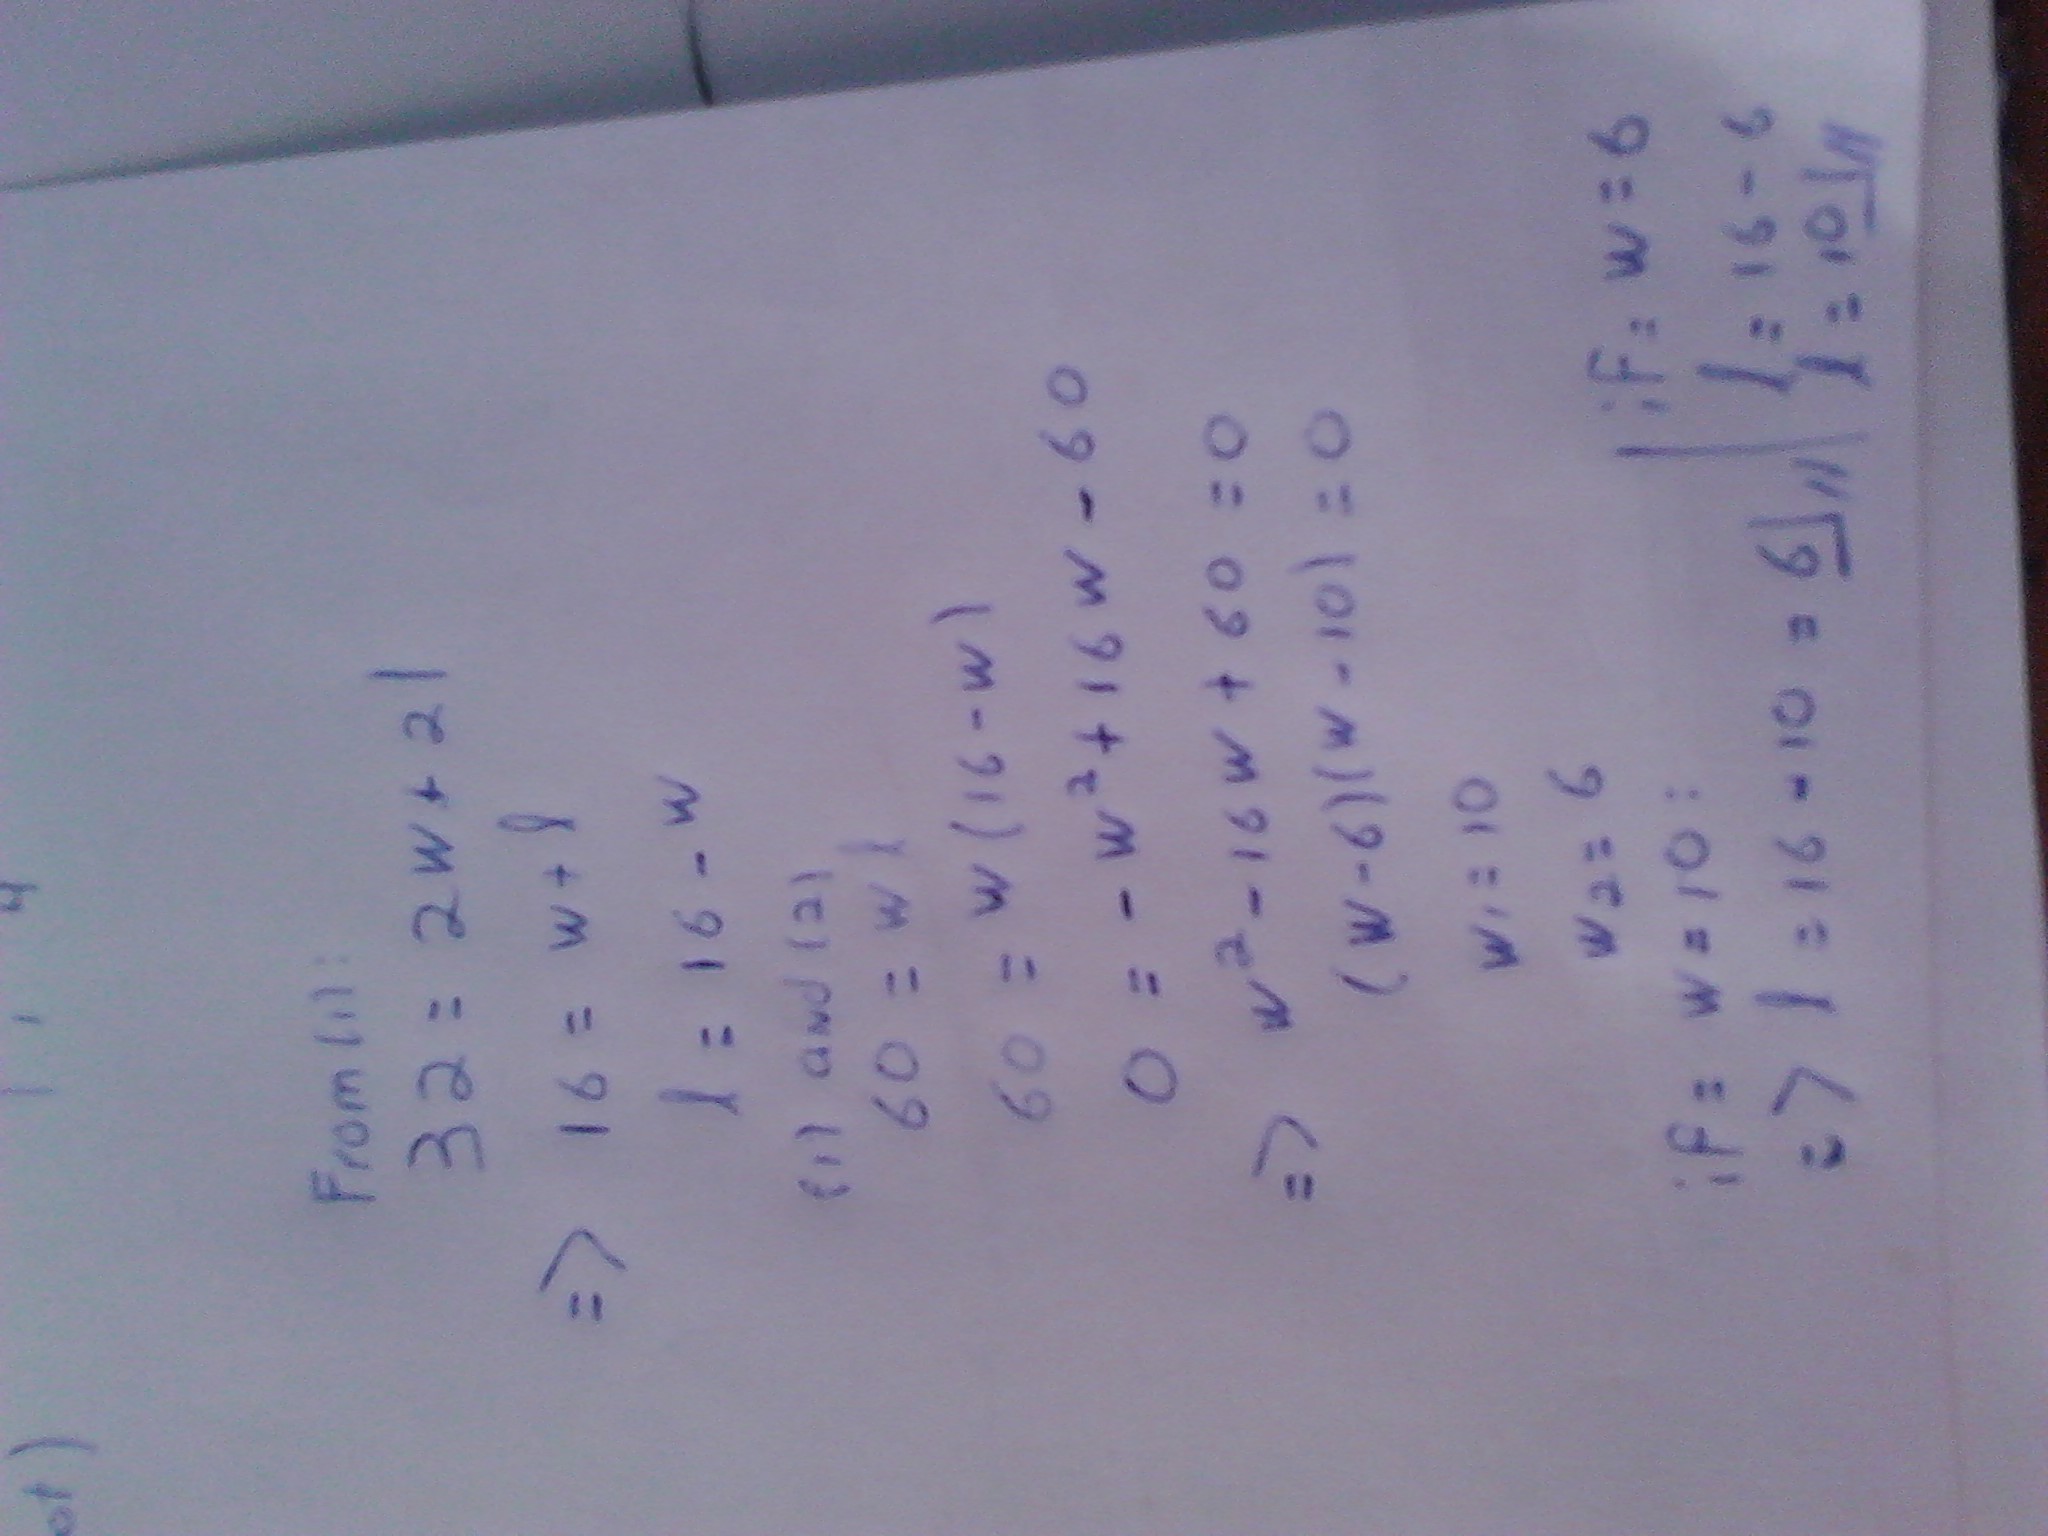 From (1):
32 = 2w + 2l
=> 16 = w + l
l = 16 - w
(1) and (2)
60 = w l
60 = w (16 - w)
0 = - w² + 16 w - 60
=> w² - 16 w + 60 = 0
(w - 6)(w - 10) = 0
w₁ = 10
w₂ = 6
if = w = 10 :
=> l = 16 - 10 = 6 //
if = w = 6
l = 16 - 6
l = 10 //